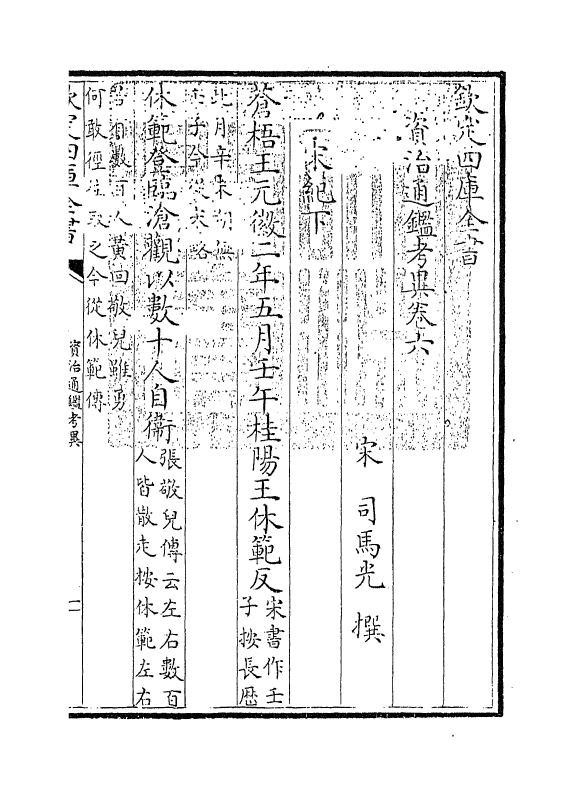 欽定四庫全書
資治通鑑考異卷六
宋 司馬光 撰
宋紀下
蒼梧王元徽二年五月壬午桂陽王休範反宋書作壬子按長厯
此月辛未朔無壬子今從宋略
休範登臨滄觀以數十人自衞張敬兒傳云左右數百人皆散走按休範左右
若有數百人黃回敬兒雖勇
何敢徑往取之今從休範傳
欽定四庫全書
資治通鑑考異
一